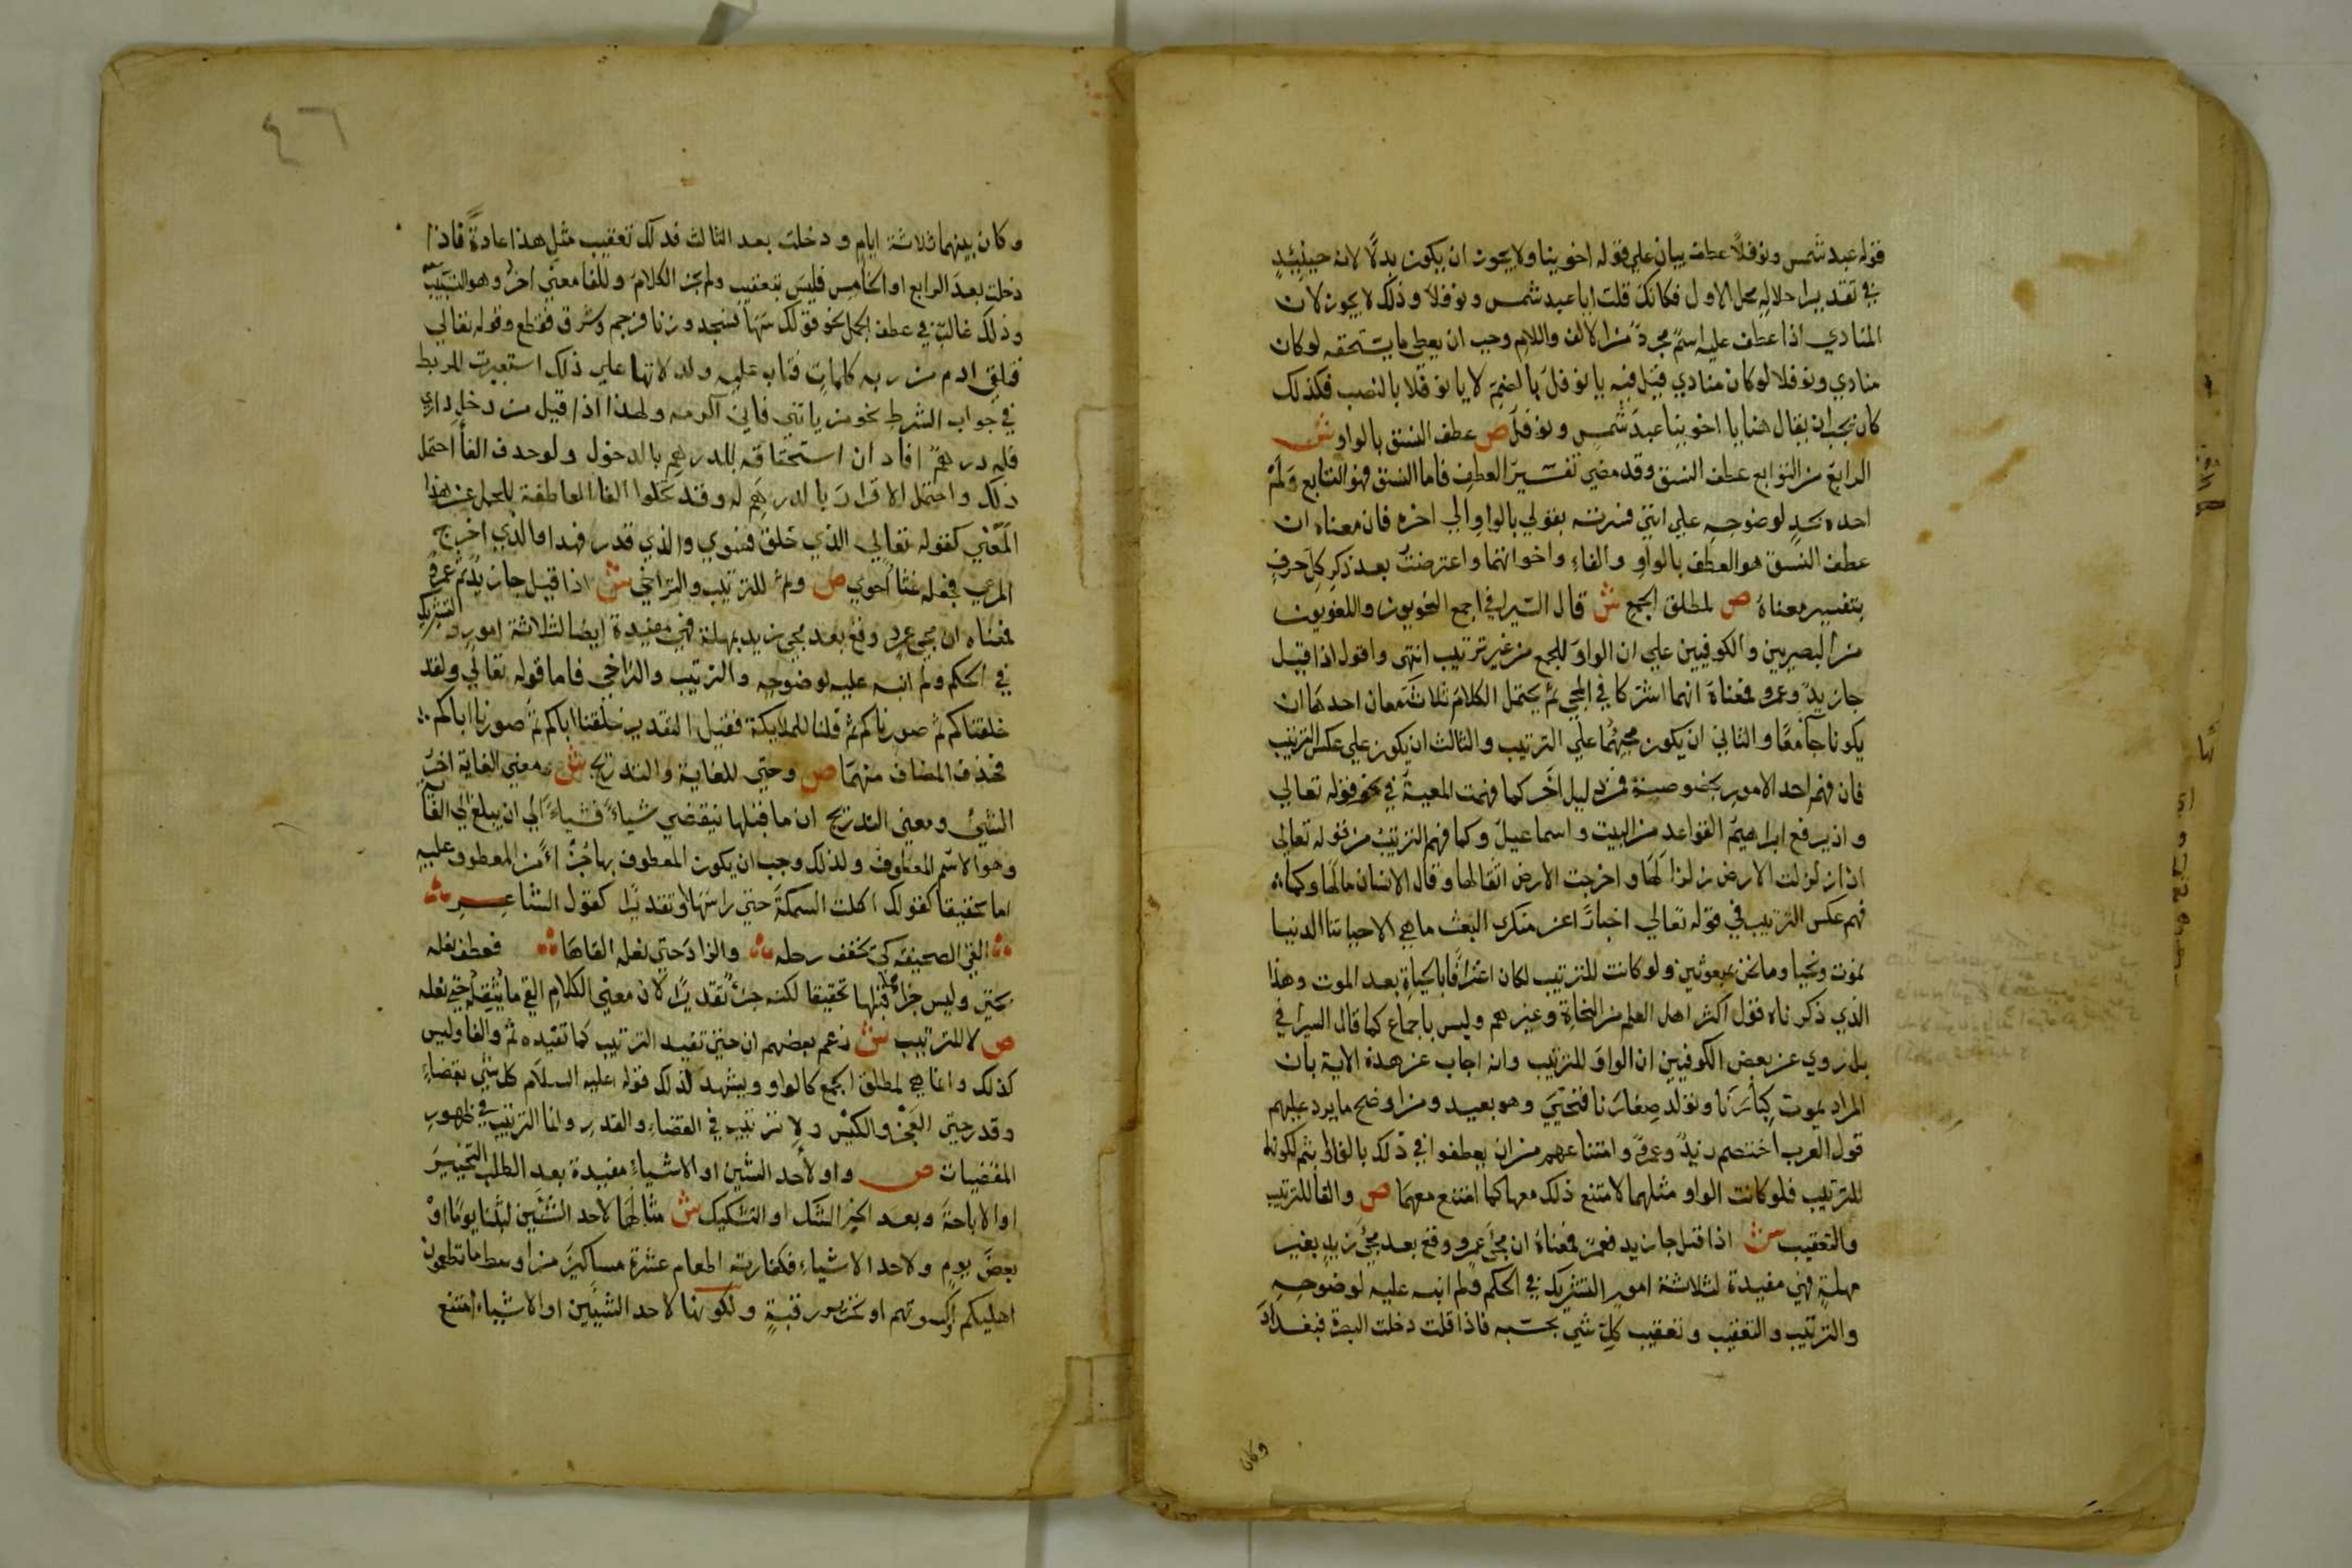 قوله عبد شمس ونوفلًا عطف بيان علي قوله اخوينا ولا يجوز ان يكون بدلًا لانه حينئذٍ
في تقدير احلاله محل الاول فكانك قلت ايا عبد شمس ونوفلا وذلك لا يجوز لان
المنادي اذا عطف عليه اسمٌ مجردٌ من الالف واللام وجب ان يعطي ما يستحقه لو كان
منادي ونوفلا لو كان منادي قيل فيه يا نوفلُ بالضم لا يا نوفلا بالنصب فكذلك
كان يجب ان يقال هنا يا اخوينا عبدَ شمسٍ ونوفلُ ص عطف النسق بالواو ش
الرابع من التوابع عطف النسق وقد مضي تفسير العطف فاما النسق فهو التابع ولم
احده بحدٍ لوضوحه علي انني فسرته بقولي بالواو الي اخره فان معناه ان
عطف النسق هو العطف بالواو والفاء واخواتهما واعترضت بعد ذكر كل حرفٍ
بتفسير معناه ص لمطلق الجمع ش قال السيرافي اجمع النحويون واللغويون
من البصريين والكوفيين علي ان الواو للجمع من غير ترتيب انتهي واقول اذا قيل
جا زيدٌ وعمرو فمعناه انهما اشتركا في المجي ثم يحتمل الكلام ثلاث معان احدها ان
يكونا جآ معًا والثاني ان يكون مجيهُما علي الترتيب والثالث ان يكون علي عكس الترتيب
فان فهم احد الامور بخصوصيته فمن دليل اخر كما فهمت المعية في نحو قوله تعالي
واذ يرفع ابراهيم القواعد من البيت واسماعيل وكما فهم الترتيب من قوله تعالي
اذا زلزلت الارض زلزالها واخرجت الارض اثقالها وقال الانسان مالها وكما
فهم عكس الترتيب في قوله تعالي اخبارًا عن منكري البعث ما هي الا حياتنا الدنيا
نموت ونحيا وما نحن بمبعوثين ولو كانت للترتيب لكان اعترافًا بالحياة بعد الموت وهذا
الذي ذكرناه قول اكثر اهل العلم من النحاة وغيرهم وليس باجماع كما قال السيرافي
بل روي عن بعض الكوفيين ان الواو للترتيب وانه اجاب عن هذه الاية بان
المراد يموت كبارنا وتولد صغارنا فنحيي وهو بعيد ومن اوضح ما يرد عليهم
قول العرب اختصم زيدٌ وعمرو وامتناعهم من ان يعطفوا في ذلك بالفا او بثم لكونهما
للترتيب فلو كانت الواو مثلهما لامتنع ذلك معها كما امتنع معهما ص والفا للترتيب
والتعقيب ش اذا قيل جا زيد فعمرو فمعناه ان مجي عمرو وقع بعد مجي زيدٍ بغير
مهلةٍ فهي مفيدة لثلاثة امور التشريك في الحكم ولم انبه عليه لوضوحه
والترتيب والتعقيب وتعقيب كل شي بحسبه فاذا قلت دخلت البصرة فبغداد
وكان
٤٦
وكان بينهما ثلاثة ايام ودخلت بعد الثالث فذلك تعقيب مثل هذا عادةً فاذا
دخلت بعد الرابع او الخامس فليس بتعقيب ولم يجز الكلام وللفا معني اخر وهو التسبب
وذلك غالبٌ في عطف الجمل نحو قولك سها فسجد وزنا فرجم وسرق فقطع وقوله تعالي
فتلقي ادم من ربه كلماتٍ فتاب عليه ولدلالتها علي ذلك استعيرت للربط
في جواب الشرط نحو من ياتني فاني اكرمه ولهذا اذا قيل من دخل داري
فله درهم افاد ان استحقاقه للدرهم بالدخول ولو حذف الفا احتمل
ذلك واحتمل الاقرار بالدرهم له وقد تخلوا الفا العاطفة للجمل عن هذا
المعني كقوله تعالي الذي خلق فسوي والذي قدر فهدا والذي اخرج
المرعي فجعله غثاً احوي ص وثم للترتيب والتراخي ش اذا قيل جا زيدٌ ثم عمرو
فمعناه ان مجي عمرو وقع بعد مجي زيد بمهلة فهي مفيدة ايضا لثلاثة امور التشريك
في الحكم ولم انبه عليه لوضوحه والترتيب والتراخي فاما قوله تعالي ولقد
خلقناكم ثم صورناكم ثم قلنا للملايكة فقيل التقدير خلقنا اباكم ثم صورنا اباكم
فحذف المضاف منهما ص وحتي للغاية والتدريج ش معني الغاية اخر
الشي ومعني التدريج ان ما قبلها ينقضي شيأً فشيأً الي ان يبلغ الي الغاية
وهو الاسم المعطوف ولذلك وجب ان يكون المعطوف بها جزءًا من المعطوف عليه
اما تحقيقا كقولك اكلت السمكة حتي راسها او تقديرًا كقول الشاعر
القي الصحيفة كي يخفف رحله والزاد حتي نعله القاها فعطف نعله
بحتي وليس جزأ مما قبلها تحقيقا لكنه جزءٌ تقديرًا لان معني الكلام القي ما يثقله حتي نعله
ص لا للترتيب ش زعم بعضهم ان حتي تفيد الترتيب كما تفيده ثم والفا وليس
كذلك وانما هي لمطلق الجمع كالواو ويشهد لذلك قوله عليه السلام كل شي بقضاءٍ
وقدر حتي العجز والكيس ولا ترتيب في القضاء والقدر وانما الترتيب في ظهور
المقضيات ص واو لاحد الشيين او الاشياء مفيدة بعد الطلب التخيير
او الاباحة وبعد الخبر الشك او التشكيك ش مثالها لاحد الشيين لبثنا يوما او
بعض يوم ولاحد الاشياء فكفارته اطعام عشرة مساكين من اوسط ما تطعمون
اهليكم او كسوتهم او تحرير رقبةٍ ولكونها لاحد الشيين او الاشياء امتنع